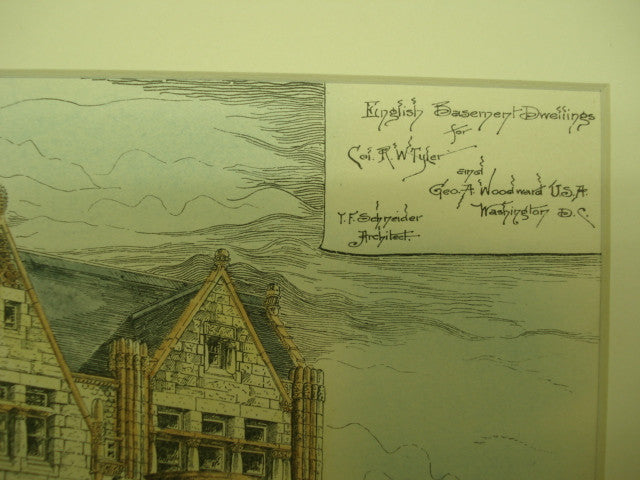 English Basement Dwellings
for
Col. R W Tyler
and
Geo. A Woodward U.S.A.
Washington D.C.
T. F. Schneider
Architect.